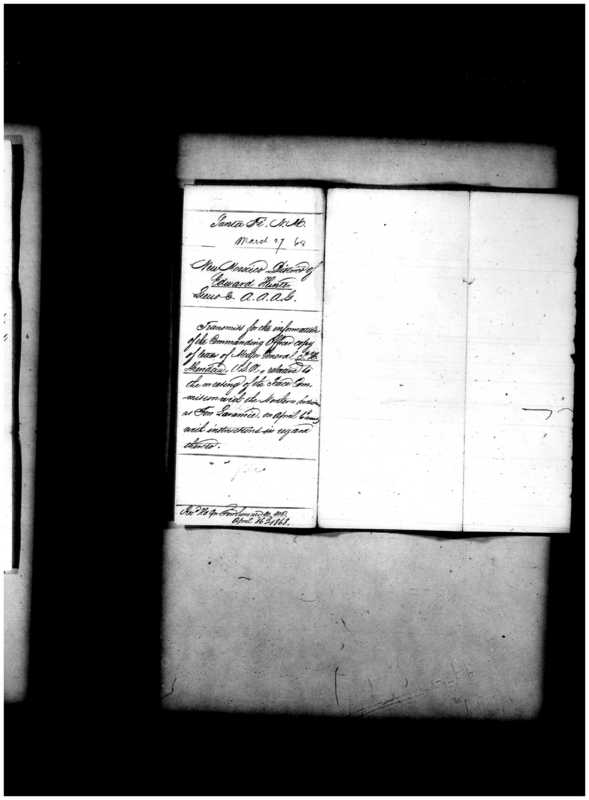 Santa Fe. N. M.
March 27 68
New Mexico District of
Edward Hunter
Lieut & A. A. A. G.
Transmits for the information
of the Commanding Officer copy
of letter of Major General
Sheridan, U.S.A., relative to
the meeting of the Peace Com
mission with the Northern Indians
at Fort Laramie, on April
and instructions in regard
thereto.
April 26 1868.